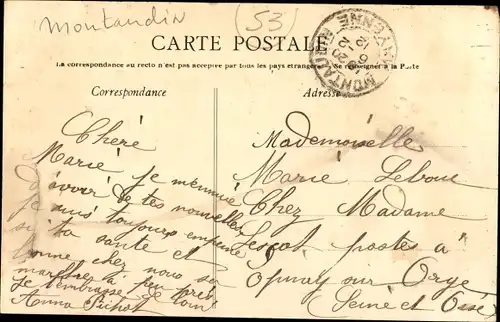 Montaudin
(53)
CARTE POSTALE
La correspondance au recto n'est pas acceptée par tous les pays étrangers (Se renseigner à la Poste)
MONTAUDIN
MAYENNE
Correspondance
Adresse
Chère
Marie je m'ennuie
d'avoir de tes nouvelles
je suis toujours
si ta santé et
bonne chez nous sa
marche à peu près
Je t'embrasse de loin
Anna Pichot
Mademoiselle
Marie Leboue
Chez Madame
Lescot postes à
Epinay sur Orge
(Seine et Oise)